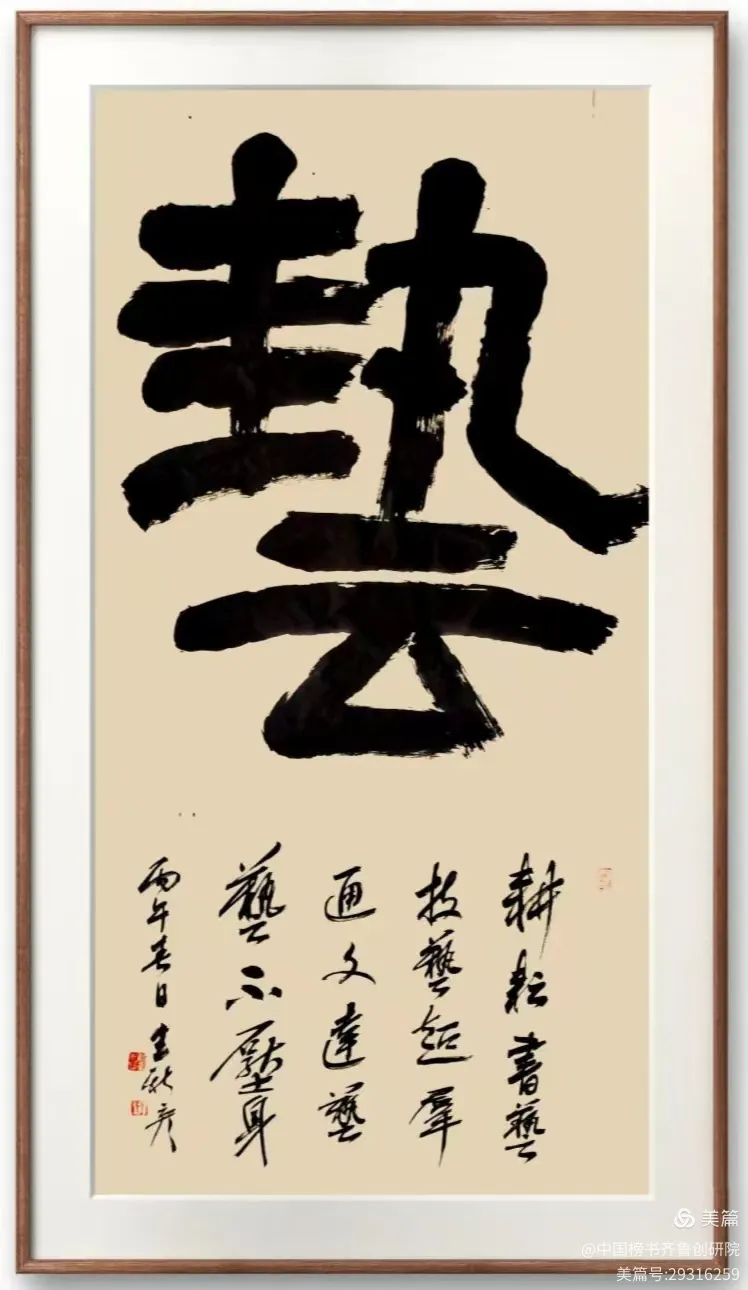 藝
耕耘書藝
技藝超羣
通文達藝
藝不壓身
丙午春日
美篇
@中国榜书齐鲁创研院
美篇号:29316259